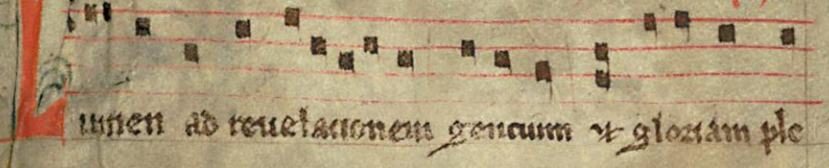 Lumen ad reuelacionem gencium et gloriam ple